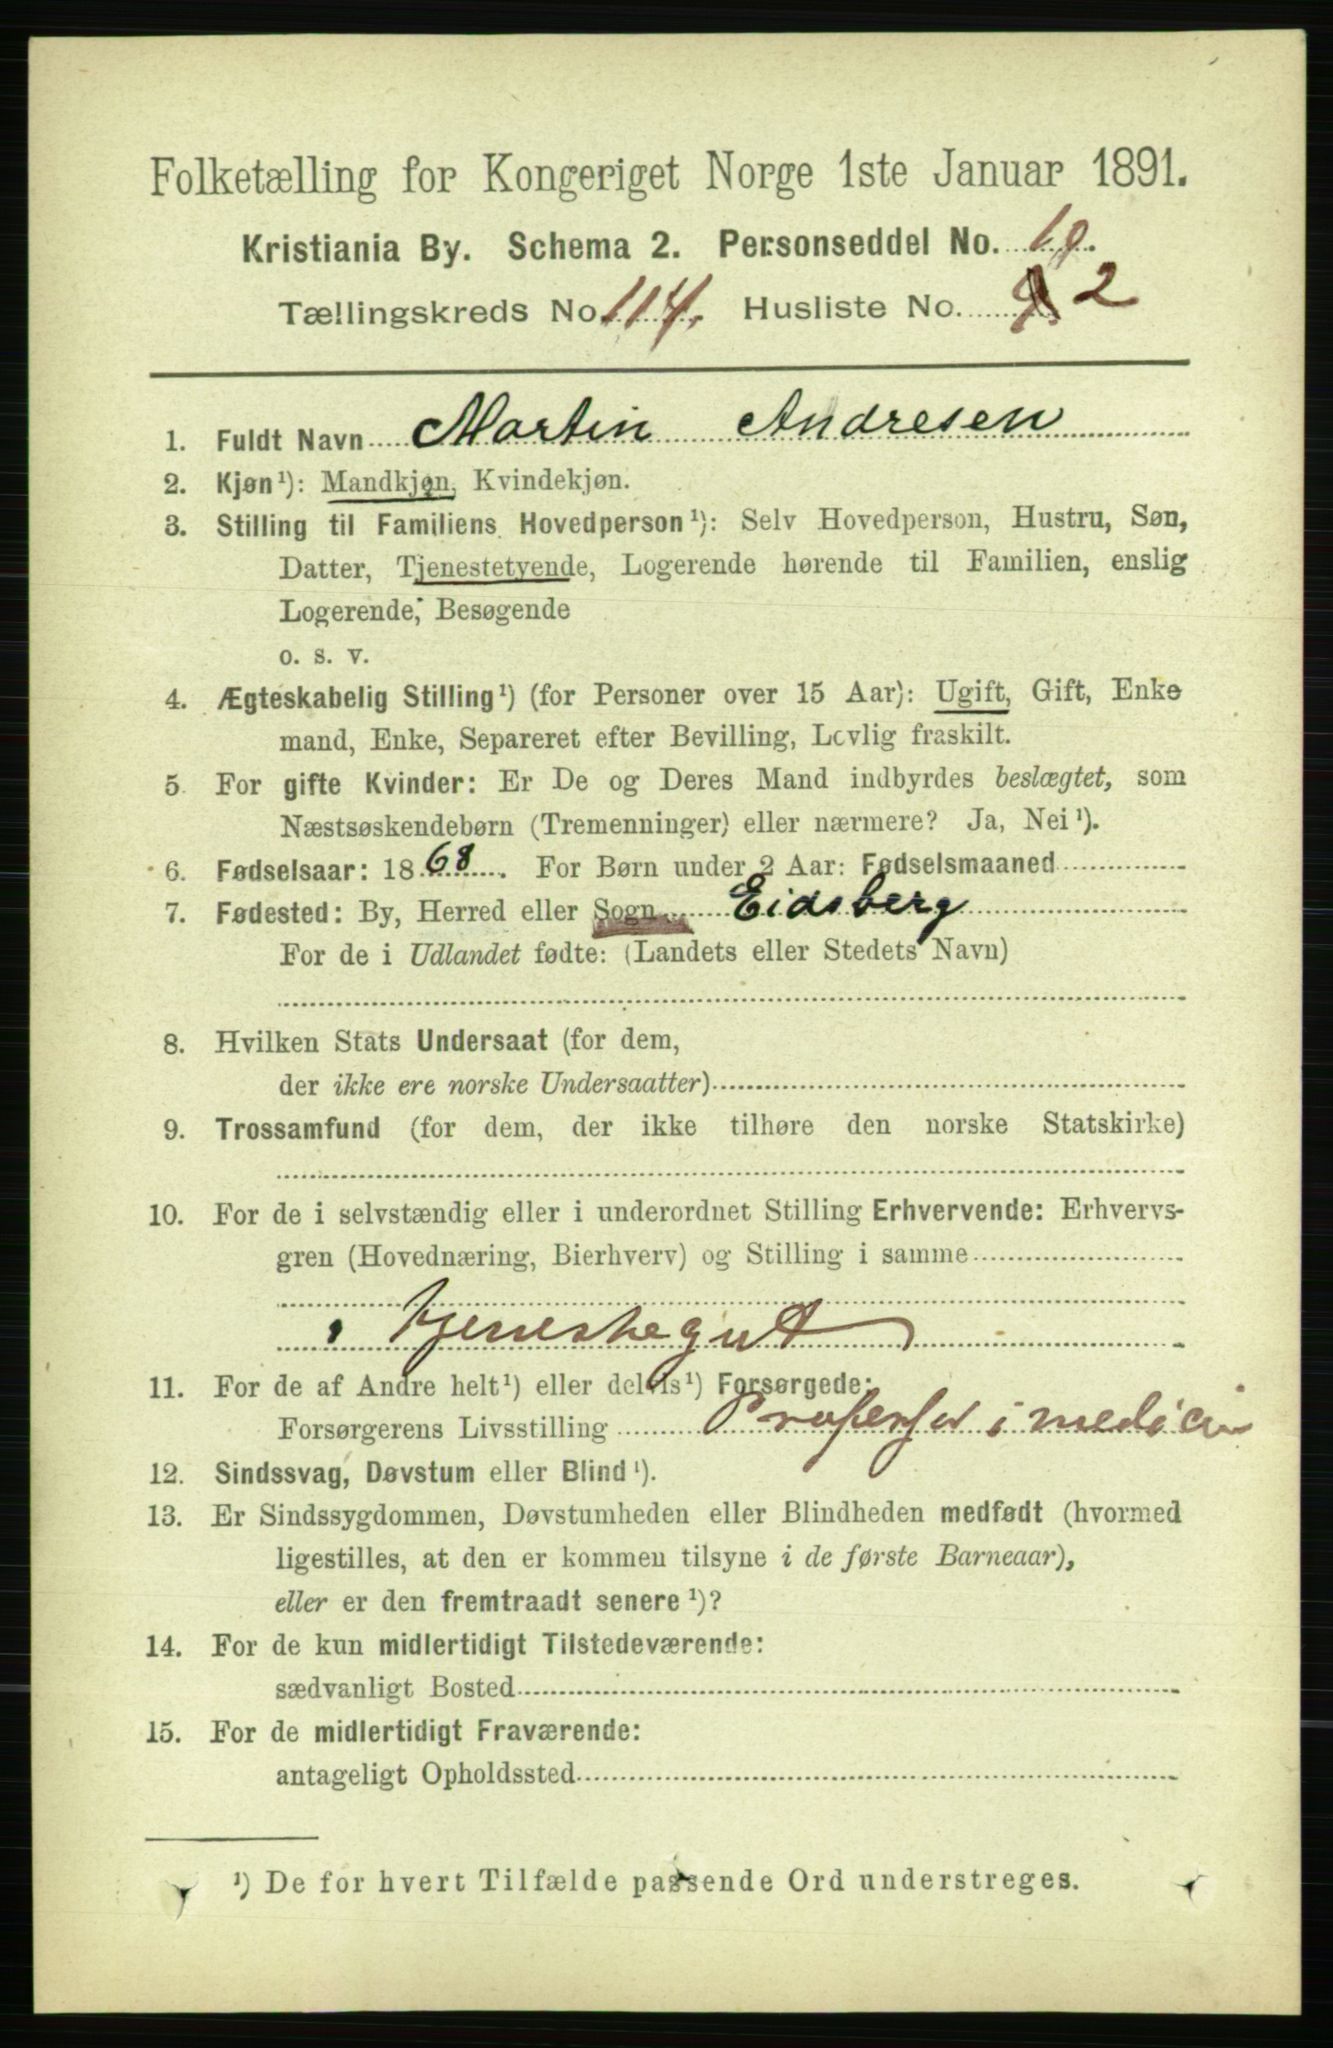 Folketælling for Kongeriget Norge 1ste Januar 1891.
Kristiania By. Schema 2. Personseddel No. 10.
Tællingskreds No. 114. Husliste No. 2
1. Fuldt Navn Martin Andresen
2. Kjøn¹): Mandkjøn, Kvindekjøn.
3. Stilling til Familiens Hovedperson¹): Selv Hovedperson, Hustru, Søn,
Datter, Tjenestetyende, Logerende hørende til Familien, enslig
Logerende, Besøgende
o. s. v.
4. Ægteskabelig Stilling¹) (for Personer over 15 Aar): Ugift, Gift, Enke
mand, Enke, Separeret efter Bevilling, Lovlig fraskilt.
5. For gifte Kvinder: Er De og Deres Mand indbyrdes beslægtet, som
Næstsøskendebørn (Tremenninger) eller nærmere? Ja, Nei¹).
6. Fødselsaar: 1868. For Børn under 2 Aar: Fødselsmaaned
7. Fødested: By, Herred eller Sogn Eidsberg
For de i Udlandet fødte: (Landets eller Stedets Navn)
8. Hvilken Stats Undersaat (for dem,
der ikke ere norske Undersaatter)
9. Trossamfund (for dem, der ikke tilhøre den norske Statskirke)
10. For de i selvstændig eller i underordnet Stilling Erhvervende: Erhvervs-
gren (Hovednæring, Bierhverv) og Stilling i samme
Tjenestegut
11. For de af Andre helt¹) eller delvis¹) Forsørgede:
Forsørgerens Livsstilling Professor i medicin
12. Sindssvag, Døvstum eller Blind¹).
13. Er Sindssygdommen, Døvstumheden eller Blindheden medfødt (hvormed
ligestilles, at den er kommen tilsyne i de første Barneaar),
eller er den fremtraadt senere¹)?
14. For de kun midlertidigt Tilstedeværende:
sædvanligt Bosted
15. For de midlertidigt Fraværende:
antageligt Opholdssted
¹) De for hvert Tilfælde passende Ord understreges.